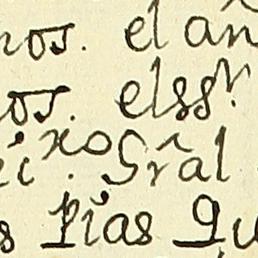 nos. el an
os. elssr.
xo. Grâl
s pîas Qu